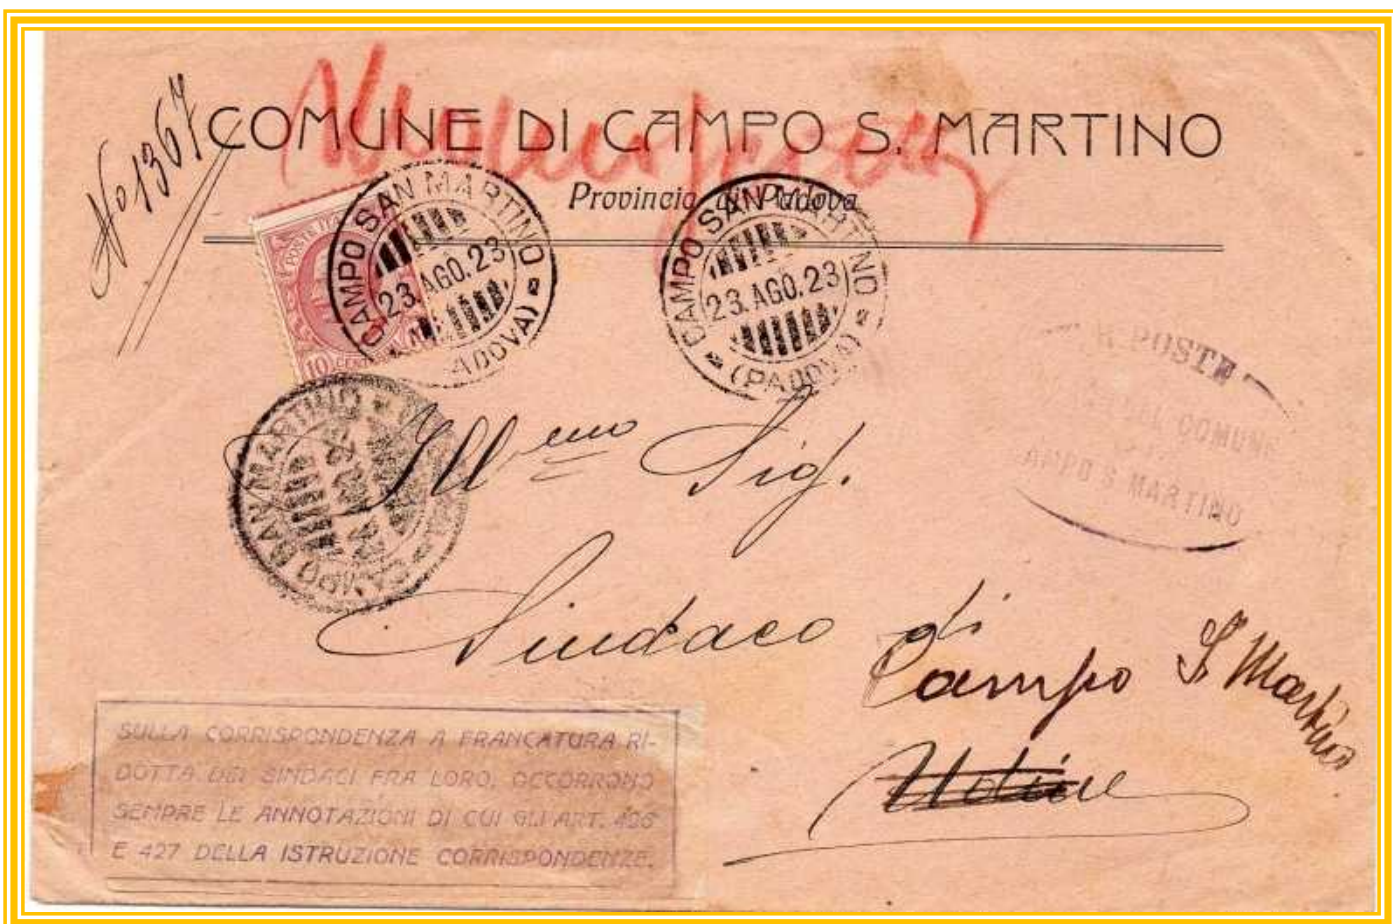 No 1367
COMUNE DI CAMPO S. MARTINO
Provincia di Padova
POSTE
10 CENT
CAMPO SAN MARTINO
23. AGO. 23
(PADOVA)
CAMPO SAN MARTINO
23. AGO. 23
(PADOVA)
R. POSTE
DEL COMUNE
AMPO S MARTINO
CAMPO SAN MARTINO
Ill.mo Sig.
Sindaco di
Campo S. Martino
Udine
SULLA CORRISPONDENZA A FRANCATURA RI-
DOTTA DEI SINDACI FRA LORO, OCCORRONO
SEMPRE LE ANNOTAZIONI DI CUI GLI ART. 426
E 427 DELLA ISTRUZIONE CORRISPONDENZE.